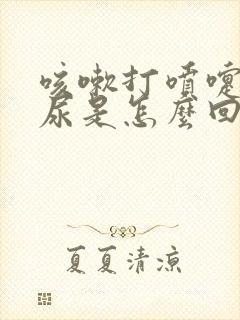 咳嗽打噴嚏
尿是怎麼回
夏夏清涼